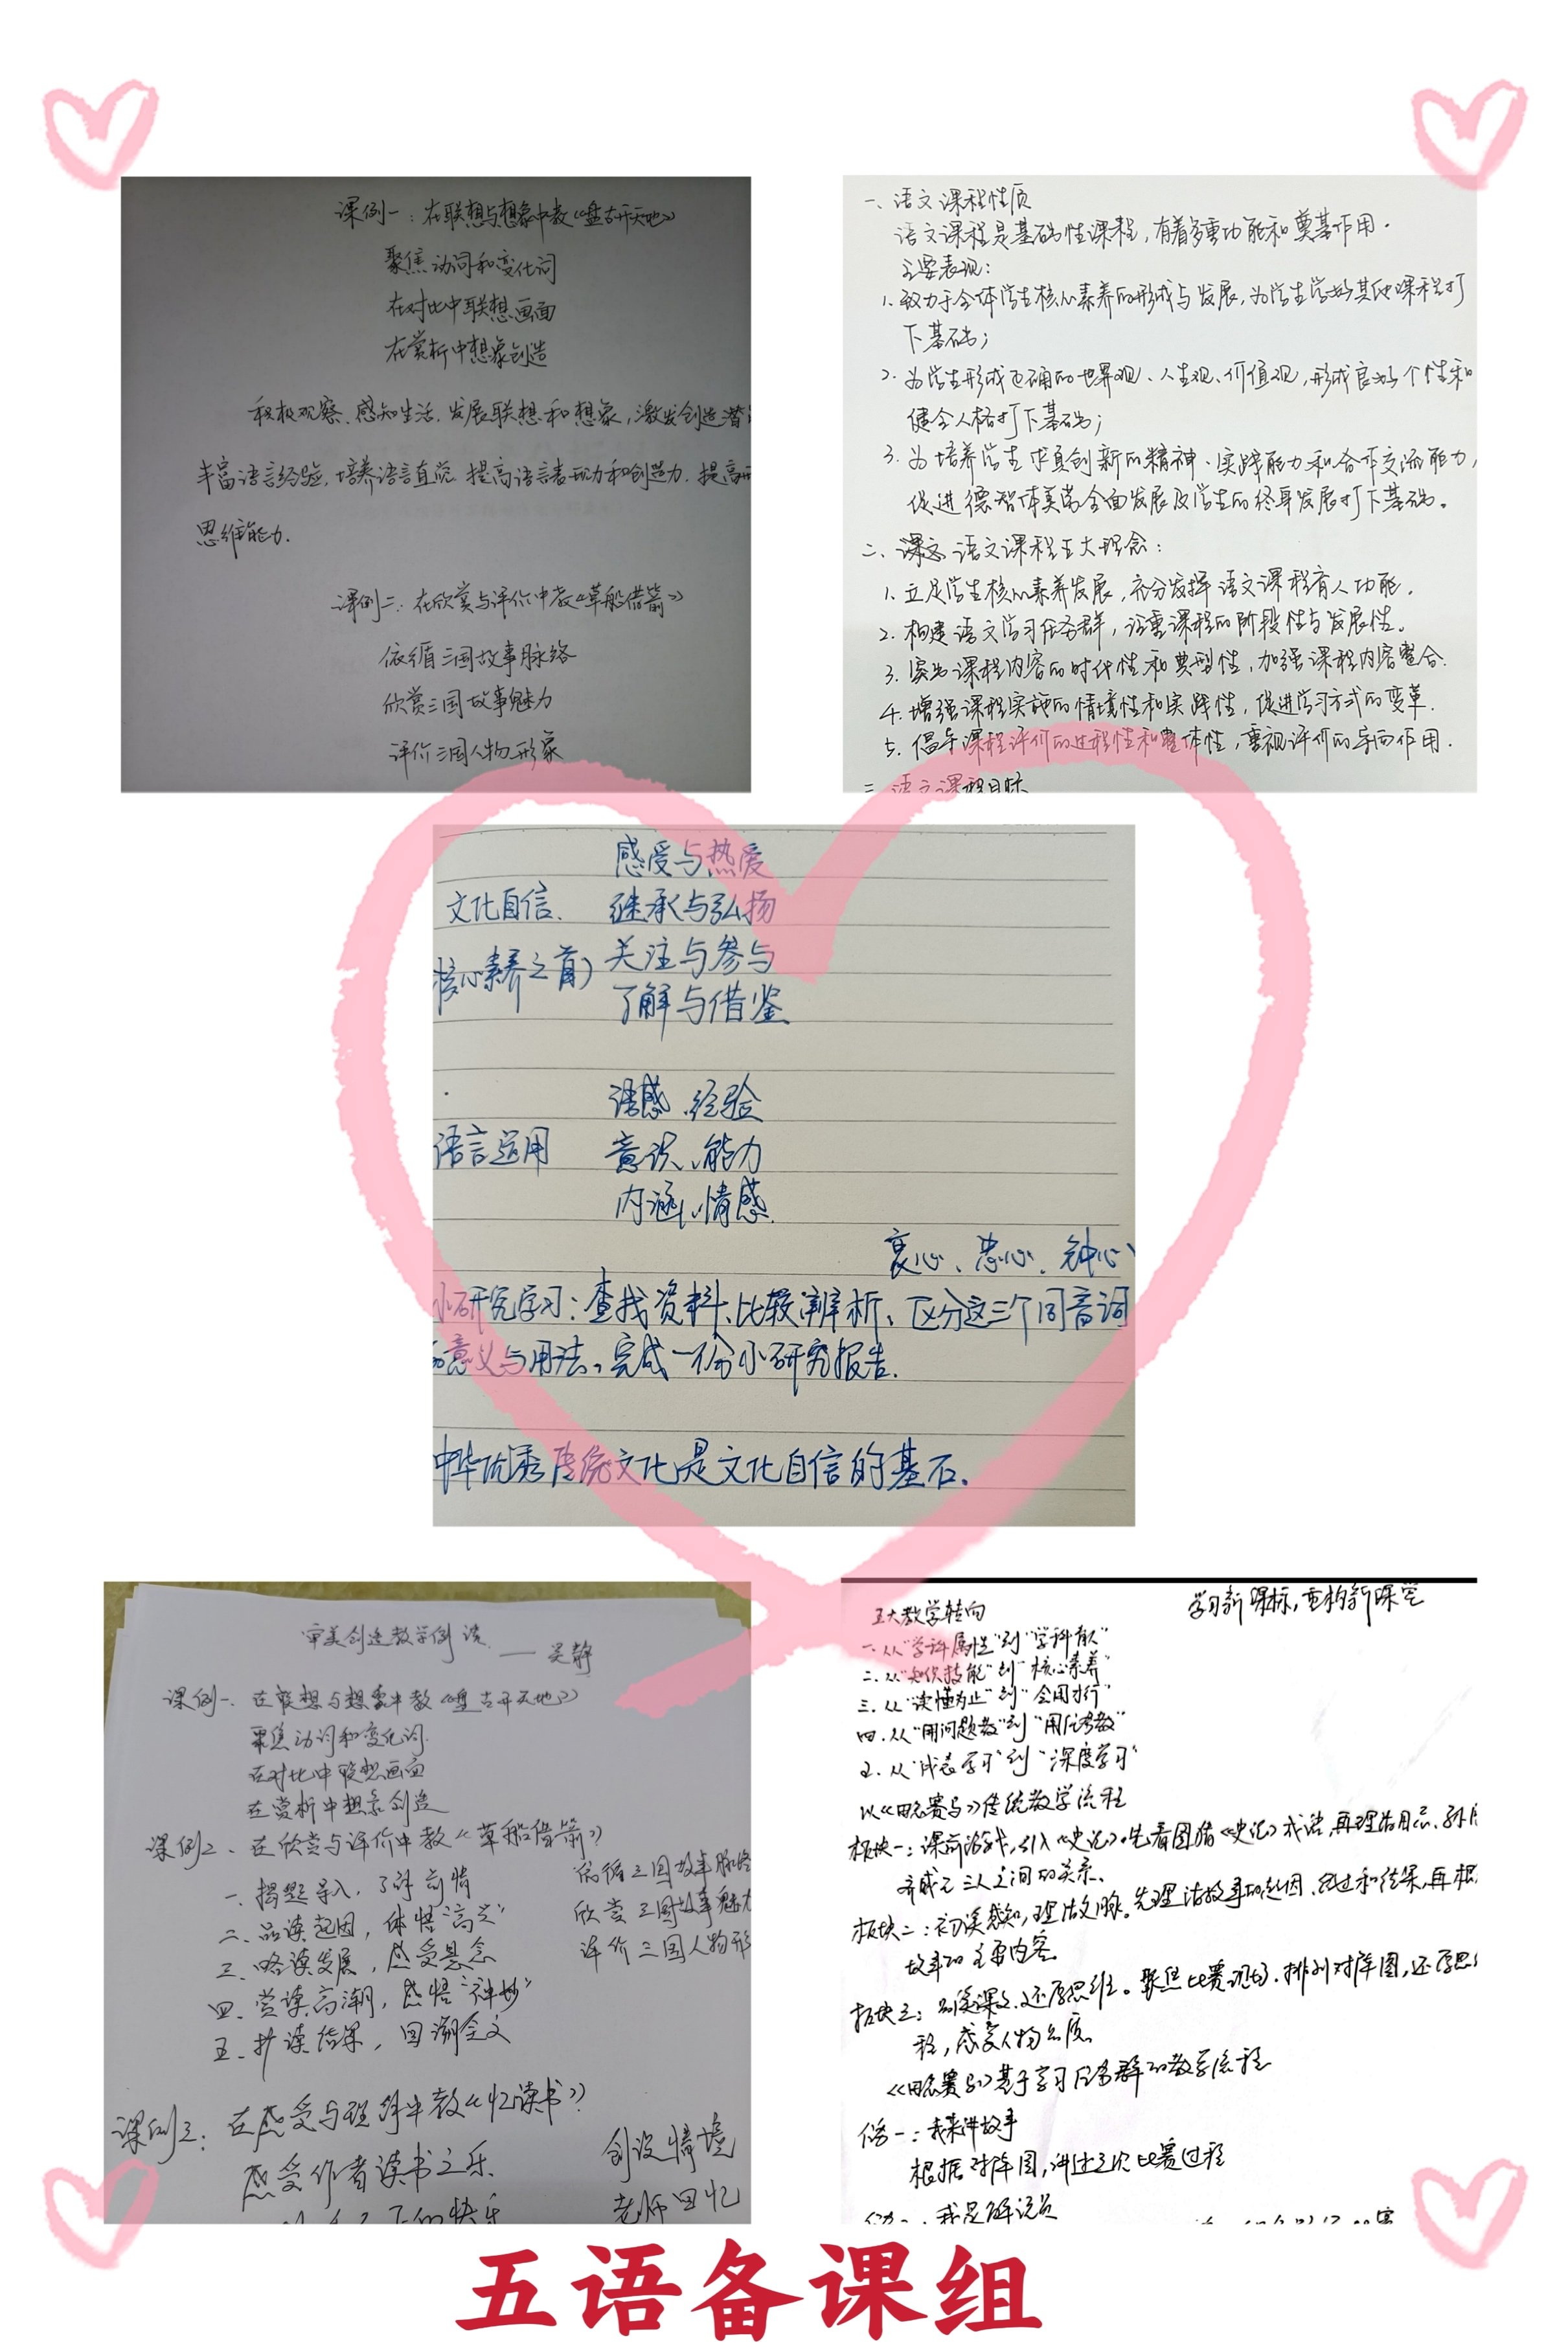 课例一：在联想与想象中教《盘古开天地》
聚焦动词和变化词
在对比中联想画面
在赏析中想象创造
积极观察、感知生活，发展联想和想象，激发创造潜
丰富语言经验，培养语言直觉，提高语言表现力和创造力，提高
思维能力.
课例二：在欣赏与评价中教《草船借箭》
依循三国故事脉络
欣赏三国故事魅力
评价三国人物形象
一、语文课程性质
语文课程是基础性课程，有着多重功能和奠基作用.
主要表现：
1. 致力于全体学生核心素养的形成与发展，为学生学好其他课程打
下基础；
2. 为学生形成正确的世界观、人生观、价值观，形成良好个性和
健全人格打下基础；
3. 为培养学生求真创新的精神、实践能力和合作交流能力，
促进德智体美劳全面发展及学生的终身发展打下基础。
二、语文课程五大理念：
1. 立足学生核心素养发展，充分发挥语文课程育人功能.
2. 构建语文学习任务群，注重课程的阶段性与发展性。
3. 突出课程内容的时代性和典型性，加强课程内容整合.
4. 增强课程实施的情境性和实践性，促进学习方式的变革.
5. 倡导课程评价的过程性和整体性，重视评价的导向作用.
三、语文课程目标
感受与热爱
文化自信、 继承与弘扬
核心素养之首） 关注与参与
了解与借鉴
语感、经验
语言运用 意识、能力
内涵、情感
衷心、忠心、钟心
小研究学习：查找资料、比较辨析、区分这三个同音词
的意义与用法，完成一份小研究报告.
中华优秀传统文化是文化自信的基石.
审美创造教学例谈
——吴静
课例一、在联想与想象中教《盘古开天地》
聚焦动词和变化词
在对比中联想画面
在赏析中想象创造
课例2、在欣赏与评价中教《草船借箭》
一、揭题导入，了解前情
二、品读起因，体悟“高尖”
三、略读发展，感受悬念
四、赏读高潮，感悟“神妙”
五、扩读结果，回溯全文
依循三国故事脉络
欣赏三国故事魅力
评价三国人物形
课例三：在感受与理解中教《忆读书》
感受作者读书之乐
的快乐
创设情境
老师回忆
学习新课标，重构新课堂
五大教学转向
一.从“学科属性”到“学科育人”
二.从“知识技能”到“核心素养”
三.从“读懂为止”到“会用才行”
四.从“用问题教”到“用任务教”
五.从“浅表学习”到“深度学习”
以《田忌赛马》传统教学流程
板块一：课前游戏，引入《史记》，先看图猜《史记》成语，再理清田忌、孙
齐威王三人之间的关系.
板块二：初读感知，理清文脉。先理清故事的起因、经过和结果，再根
故事的主要内容
板块三：品读课文，还原思维。聚焦比赛现场，排列对阵图，还原思
程，感受人物品质
《田忌赛马》基于学习任务群的教学流程
任务一：我来讲故事
根据对阵图，讲述三次比赛过程
任务二：我是解说员
五语备课组